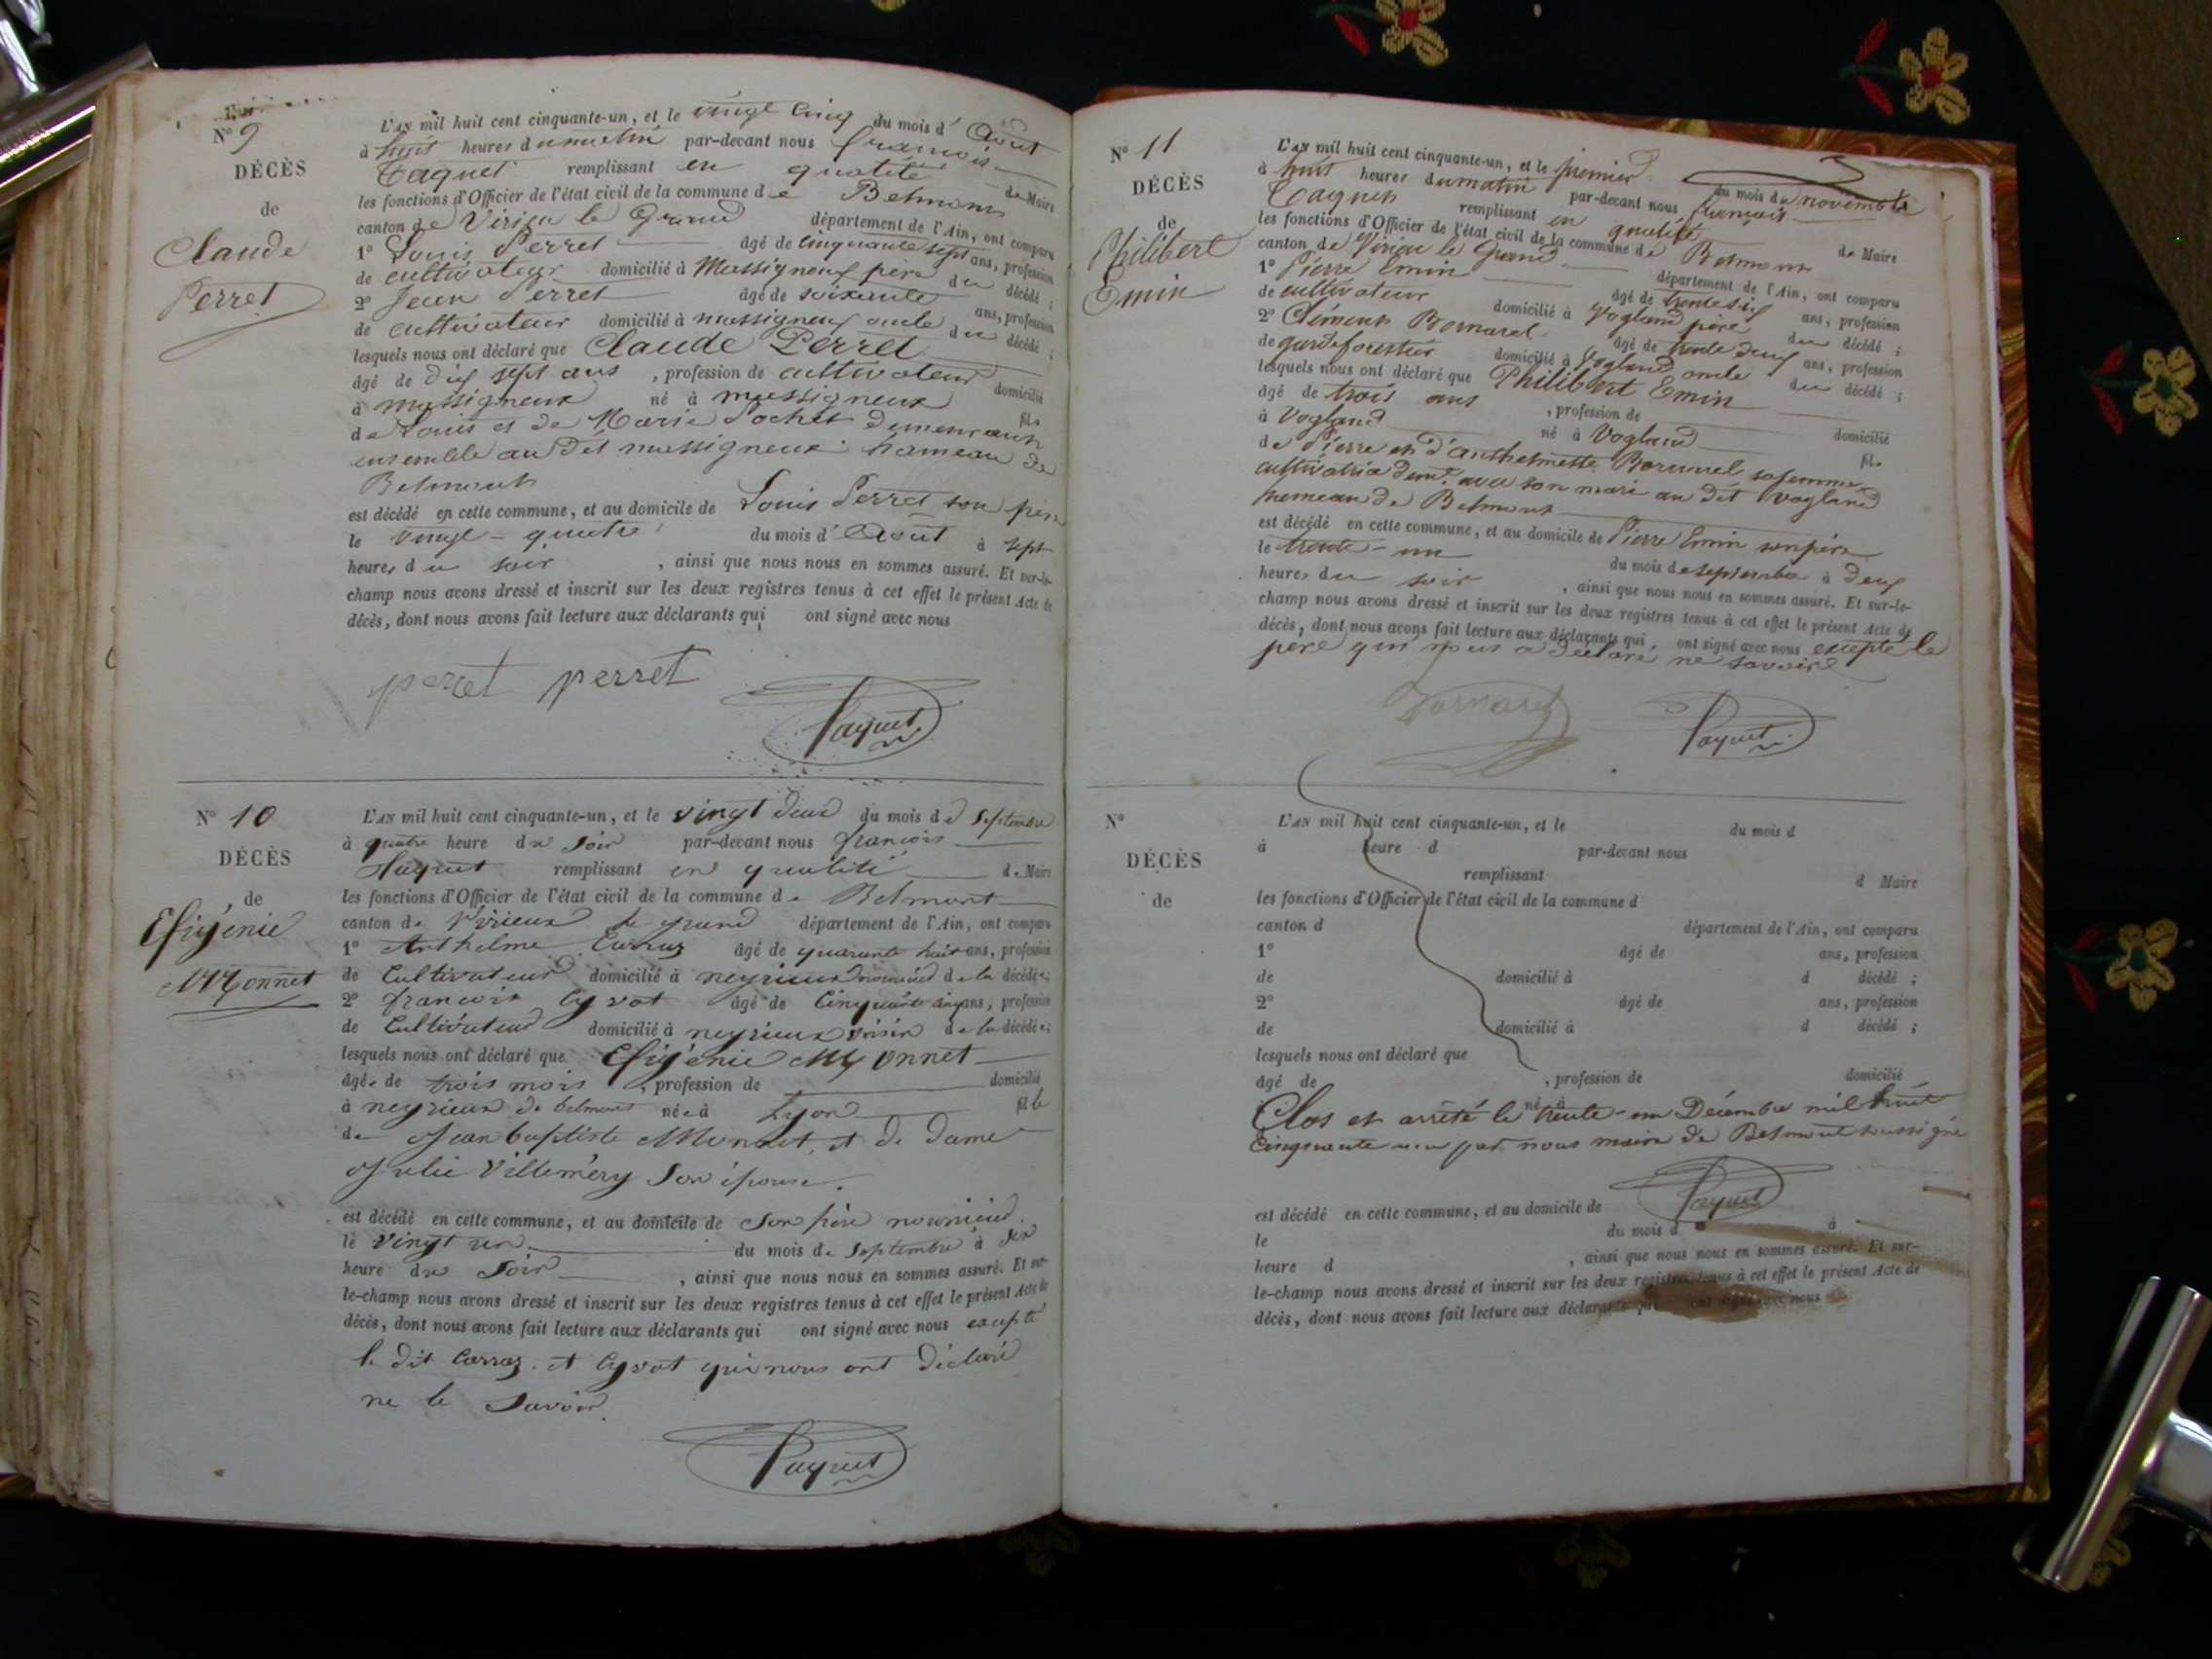 N° 9
DÉCÈS
de
Claude
Perret
L'AN mil huit cent cinquante-un, et le vingt cinq du mois d' Août
à huit heures du matin par-devant nous françois
Paquet remplissant en qualité de Maire
les fonctions d'Officier de l'état civil de la commune de Belmont
canton de Virieu le Grand département de l'Ain, ont comparu
1° Louis Perret âgé de cinquante sept ans, profession
de cultivateur domicilié à Massigneux père du décédé ;
2° Jean Perret âgé de soixante ans, profession
de cultivateur domicilié à massigneux oncle du décédé ;
lesquels nous ont déclaré que Claude Perret
âgé de dix sept ans , profession de cultivateur domicilié
à massigneux né à massigneux fils
de Louis et de Marie Pochet demeurant
ensemble au dit massigneux hameau de
Belmont
est décédé en cette commune, et au domicile de Louis Perret son père
le vingt-quatre du mois d' Août à sept
heures du soir , ainsi que nous nous en sommes assuré. Et sur-le-
champ nous avons dressé et inscrit sur les deux registres tenus à cet effet le présent Acte de
décès, dont nous avons fait lecture aux déclarants qui ont signé avec nous
perret perret
Paquet
N° 10
DÉCÈS
de
Efigénie
Monnet
L'AN mil huit cent cinquante-un, et le vingt deux du mois de Septembre
à quatre heure du soir par-devant nous françois
Paquet remplissant en qualité de Maire
les fonctions d'Officier de l'état civil de la commune de Belmont
canton de Virieux le grand département de l'Ain, ont comparu
1° Anthelme Carraz âgé de quarante huit ans, profession
de Cultivateur domicilié à neyrieux nourricier de la décédée ;
2° françois Cyvot âgé de Cinquante cinq ans, profession
de Cultivateur domicilié à neyrieux voisin de la décédée ;
lesquels nous ont déclaré que Efigénie Monnet
âgée de trois mois , profession de domicilié
à neyrieux de belmont née à Lyon fille
de Jean baptiste Monnet, et de dame
Julie Villeméry Son épouse.
est décédé en cette commune, et au domicile de Son père nourricier
le vingt un du mois de Septembre à six
heure du Soir , ainsi que nous nous en sommes assuré. Et sur-
le-champ nous avons dressé et inscrit sur les deux registres tenus à cet effet le présent Acte de
décès, dont nous avons fait lecture aux déclarants qui ont signé avec nous excepté
le dit Carraz et Cyvot qui nous ont déclaré
ne le Savoir.
Paquet
N° 11
DÉCÈS
de
Philibert
Emin
L'AN mil huit cent cinquante-un, et le premier du mois de novembre
à huit heures du matin par-devant nous françois
Paquet remplissant en qualité de Maire
les fonctions d'Officier de l'état civil de la commune de Belmont
canton de Virieu le Grand département de l'Ain, ont comparu
1° Pierre Emin âgé de trente six ans, profession
de cultivateur domicilié à Vogland père du décédé ;
2° Clément Bornarel âgé de trente deux ans, profession
de garde forestier domicilié à Vogland oncle du décédé ;
lesquels nous ont déclaré que Philibert Emin
âgé de trois ans , profession de domicilié
à Vogland né à Vogland fils
de Pierre et d'anthelmette Bornarel sa femme
cultivatrice demt. avec son mari au dit Vogland
hameau de Belmont
est décédé en cette commune, et au domicile de Pierre Emin son père
le trente-un du mois de septembre à deux
heures du soir , ainsi que nous nous en sommes assuré. Et sur-le-
champ nous avons dressé et inscrit sur les deux registres tenus à cet effet le présent Acte de
décès, dont nous avons fait lecture aux déclarants qui ont signé avec nous excepté le
père qui nous a déclaré ne savoir
Bornarel
Paquet
N°
DÉCÈS
de
L'AN mil huit cent cinquante-un, et le du mois d
à heure d par-devant nous
remplissant d Maire
les fonctions d'Officier de l'état civil de la commune d
canton d département de l'Ain, ont comparu
1° âgé de ans, profession
de domicilié à d décédé ;
2° âgé de ans, profession
de domicilié à d décédé ;
lesquels nous ont déclaré que
âgé de , profession de domicilié
né à
Clos et arrêté le trente-un Décembre mil huit
Cinquante un par nous maire de Belmont soussigné
Paquet
est décédé en cette commune, et au domicile de
le du mois d à
heure d , ainsi que nous nous en sommes assuré. Et sur-
le-champ nous avons dressé et inscrit sur les deux registres tenus à cet effet le présent Acte de
décès, dont nous avons fait lecture aux déclarants qui ont signé avec nous